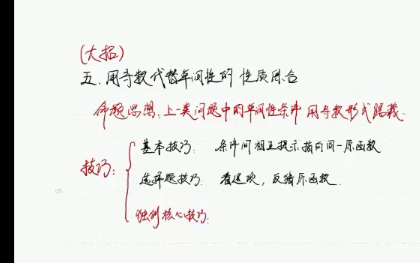 (大招)
五.用导数代替单调性的性质用合
命题思想:上一类问题中的单调性条件用导数形式踢载.
技巧:
基本技巧:条件间相互提示指向同一原函数
选择题技巧:看选项,反猜原函数.
独创核心技巧: